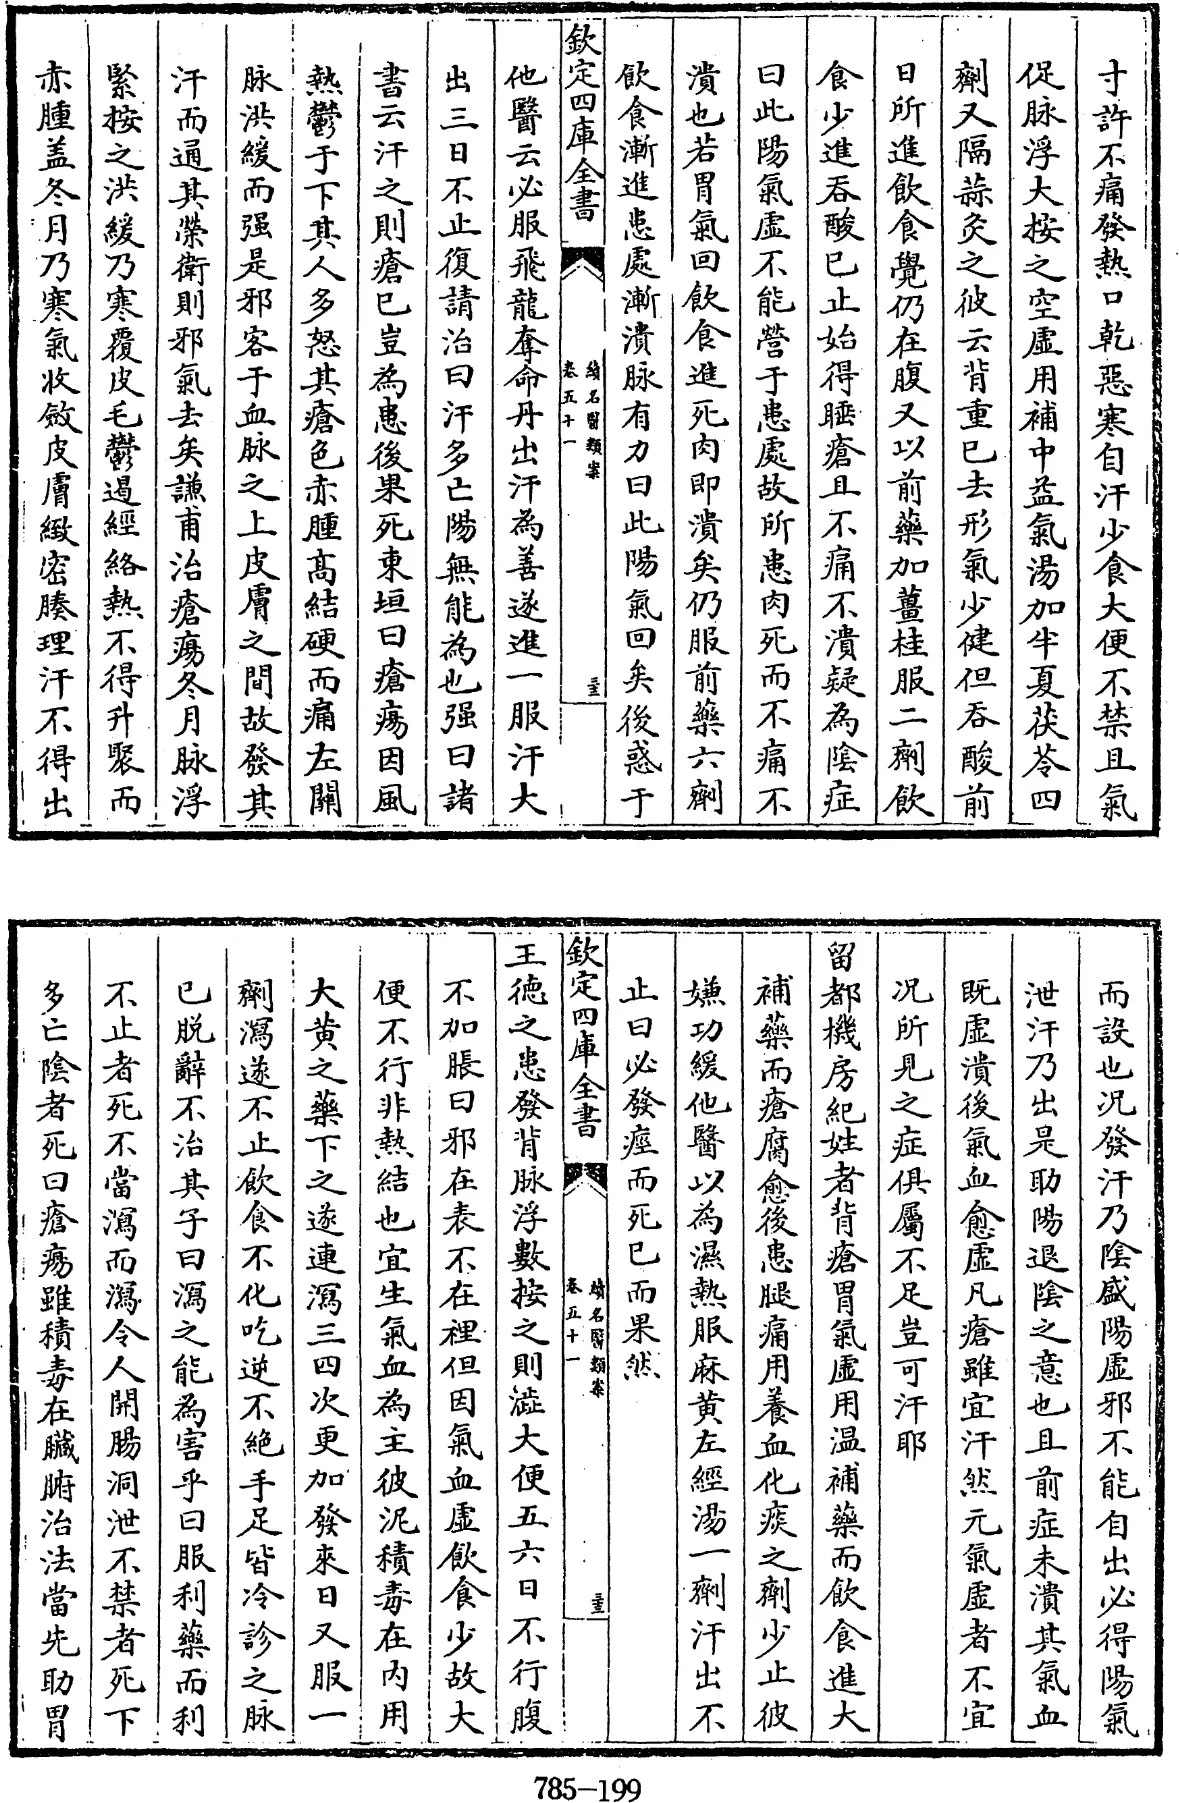 寸許不痛發熱口乾惡寒自汗少食大便不禁且氣
促脉浮大按之空虛用補中益氣湯加半夏茯苓四
劑又隔蒜灸之彼云背重已去形氣少健但吞酸前
日所進飲食覺仍在腹又以前藥加薑桂服二劑飲
食少進吞酸已止始得睡瘡且不痛不潰疑為陰症
曰此陽氣虛不能營于患處故所患肉死而不痛不
潰也若胃氣回飲食進死肉即潰矣仍服前藥六劑
飲食漸進患處漸潰脉有力曰此陽氣回矣後惑于
欽定四庫全書
續名醫類案
卷五十一
他醫云必服飛龍奪命丹出汗為善遂進一服汗大
出三日不止復請治曰汗多亡陽無能為也强曰諸
書云汗之則瘡已豈為患後果死東垣曰瘡瘍因風
熱鬱于下其人多怒其瘡色赤腫髙結硬而痛左關
脉洪緩而强是邪客于血脉之上皮膚之間故發其
汗而通其榮衛則邪氣去矣謙甫治瘡瘍冬月脉浮
緊按之洪緩乃寒覆皮毛鬱遏經絡熱不得升聚而
赤腫盖冬月乃寒氣收斂皮膚緻密腠理汗不得出
而設也况發汗乃陰盛陽虛邪不能自出必得陽氣
泄汗乃出是助陽退陰之意也且前症未潰其氣血
既虛潰後氣血愈虛凡瘡雖宜汗然元氣虛者不宜
况所見之症俱屬不足豈可汗耶
留都機房紀姓者背瘡胃氣虛用温補藥而飲食進大
補藥而瘡腐愈後患腿痛用養血化痰之劑少止彼
嫌功緩他醫以為濕熱服麻黄左經湯一劑汗出不
止曰必發痙而死已而果然
欽定四庫全書
續名醫類案
卷五十一
王德之患發背脉浮數按之則澁大便五六日不行腹
不加脹曰邪在表不在裡但因氣血虛飲食少故大
便不行非熱結也宜生氣血為主彼泥積毒在内用
大黄之藥下之遂連瀉三四次更加發來日又服一
劑瀉遂不止飲食不化吃逆不絶手足皆冷診之脉
已脱辭不治其子曰瀉之能為害乎曰服利藥而利
不止者死不當瀉而瀉令人開腸洞泄不禁者死下
多亡陰者死曰瘡瘍雖積毒在臟腑治法當先助胃
785–199